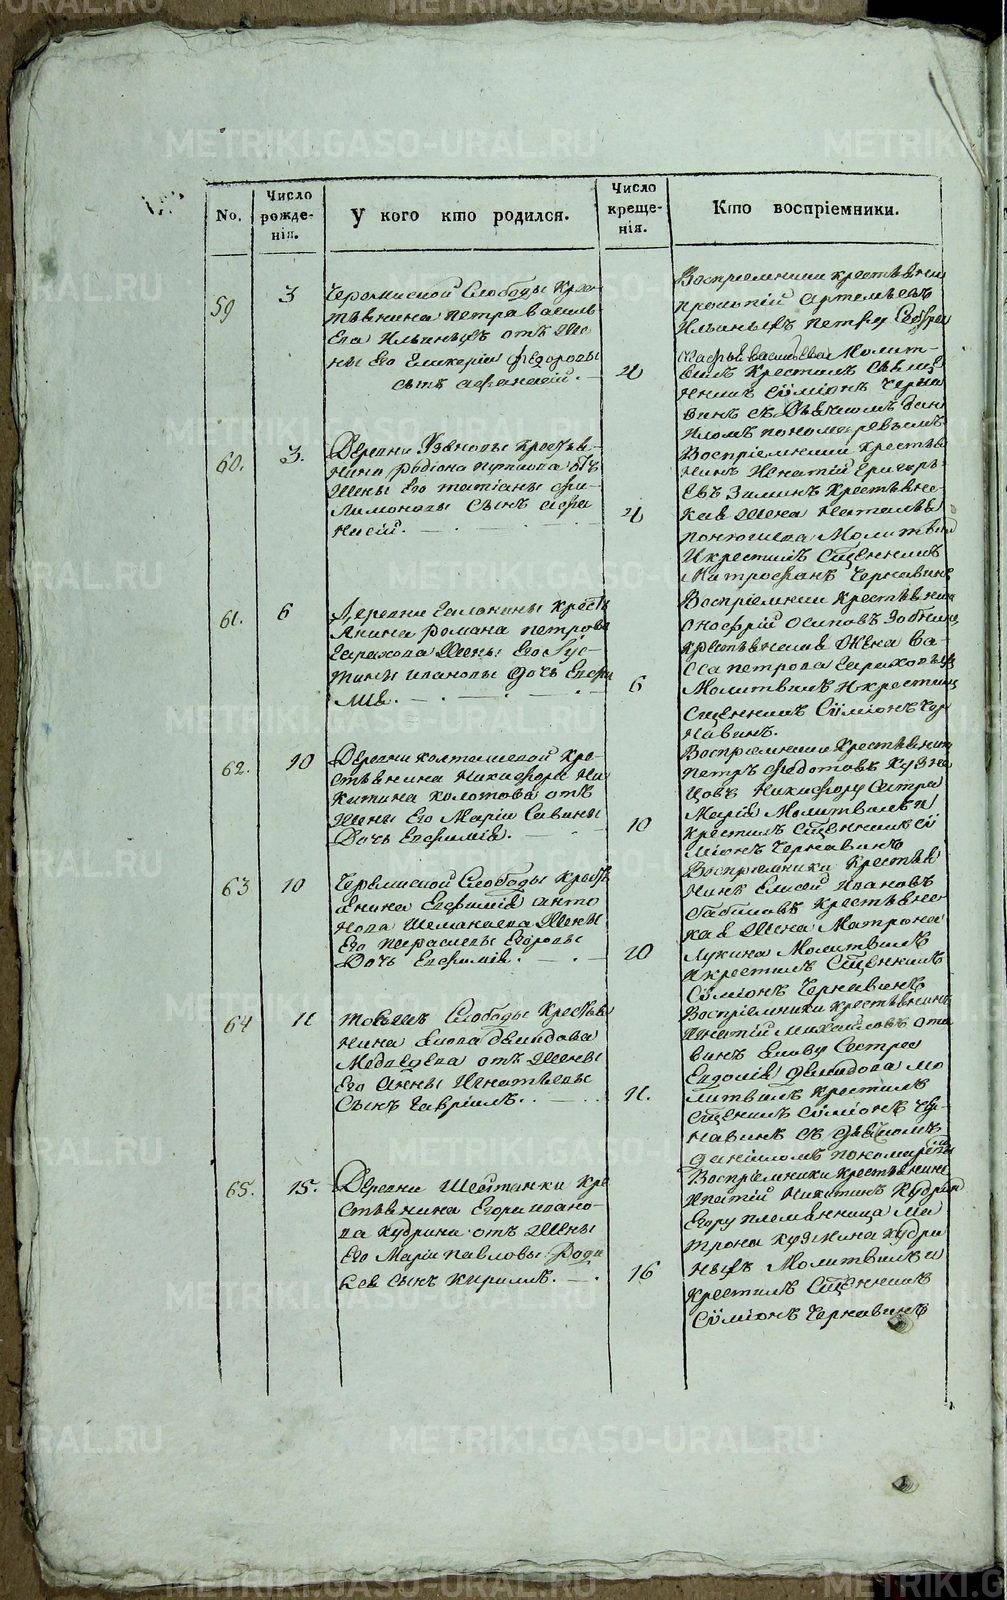 No.
Число рожде-нія.
У кого кто родился.
Число креще-нія.
Кто воспріемники.
59
3
Черемисской Слободы Крес-
тьянина Петра Василь
Ева Ильиныхъ отъ Же
ны Его Гликеріи Федоровы
сынъ Афанасій.
4
Воспріемники крестьянин
Прокопій Артемьевъ
Ильиныхъ Петру
Васильева Молит-
вилъ Крестилъ Свящ
нникъ Сѵміонъ Черна
винъ съ Дьячкомъ Дан
иломъ пономаревымъ
60.
3.
Деревни Крестья-
нина Родіона отъ
Жены Его Татіаны Фи-
лимоновы Сынъ Афа
насій.
4
Воспріемники Крестья
нинъ Игнатій Григорь-
евъ Зиминъ Крестьянс-
кая Жена Наталья
Молитвилъ
И крестилъ Сщенникъ
Митрофанъ Чернавинъ
61.
6
Деревни Галанины Кресть
янина Романа Петрова
Жены Его Іус-
тины Ивановы Дочь Евфи
мія.
6
Воспріемники Крестьянин
Онофрій Осиповъ Зобнинъ
крестьянская Жена Ва-
сса Петрова
Молитвилъ И крестилъ
Сщенникъ Сѵміонъ Чер
навинъ.
62.
10
Деревни Колташевой Кре-
стьянина Никифора Ни
китина Колотова отъ
Жены Его Маріи Савины
Дочь Евфимія.
10
Воспріемники Крестьянин
Петръ Федотовъ Кузне
цовъ Никифору Сестра
Марія Молитвилъ и
крестилъ Сщенникъ Сѵ
міонъ Чернавинъ
63
10
Черемисской Слободы Кресть
янина Евфимія Анто
нова Шеманаева Жены
Его Параскевы Егоровы
Дочь Евфимія.
10
Воспріемники Крестья
нинъ Елисей Ивановъ
Крестьянс-
кая Жена Матрона
Лукина Молитвилъ
И крестилъ Сщенникъ
Сѵміонъ Чернавинъ
64
11
Тояжъ Слободы Крестья
нина Давидова
Медведева отъ Жены
Его Анны Игнатьевы
Сынъ Гавріилъ.
11.
Воспріемники Крестьянинъ
Игнатій Михайловъ
Сестра
Евдокія Давидова мо
литвилъ Крестилъ
Сщенникъ Сѵміонъ Чер-
навинъ съ дьячкомъ
даніиломъ пономаревымъ
65.
15.
Деревни Шайтанки Кре
стьянина Егора Ивано-
ва Кудрина отъ Жены
Его Маріи Павловы Роди
лся Сынъ Кирилъ.
16
Воспріемники Крестьянин
Игнатій Никитинъ Кудрин
Егору племянница Ма
трона Кузмина Кудри
ныхъ Молитвилъ и
крестилъ Сщенникъ
Сѵміонъ Чернавинъ
METRIKI.GASO-URAL.RU